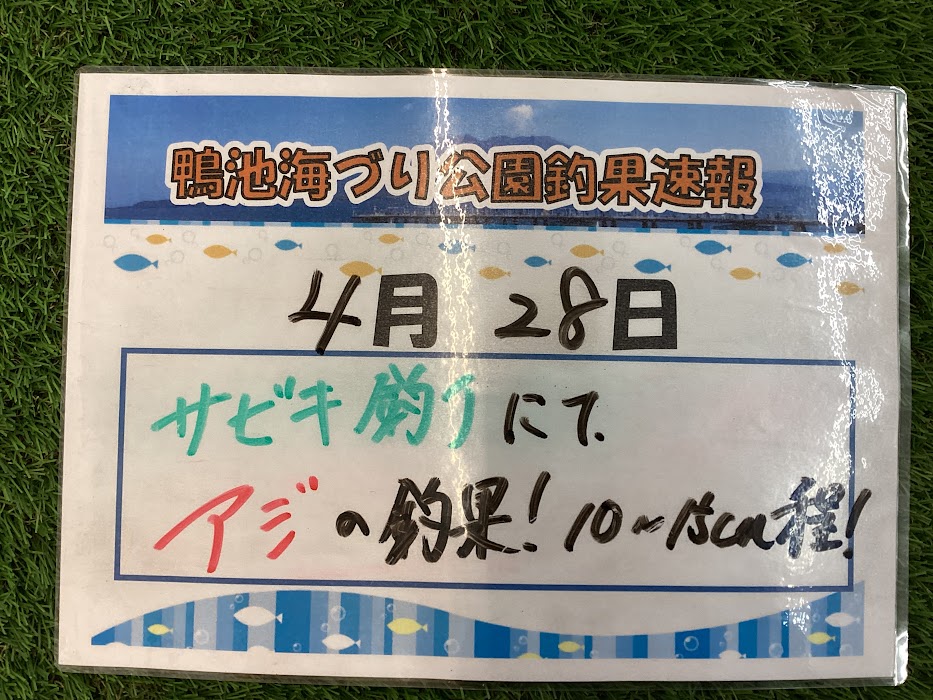 鴨池海づり公園釣果速報
4月 28日
サビキ釣りにて、
アジの釣果!10~15cm程!